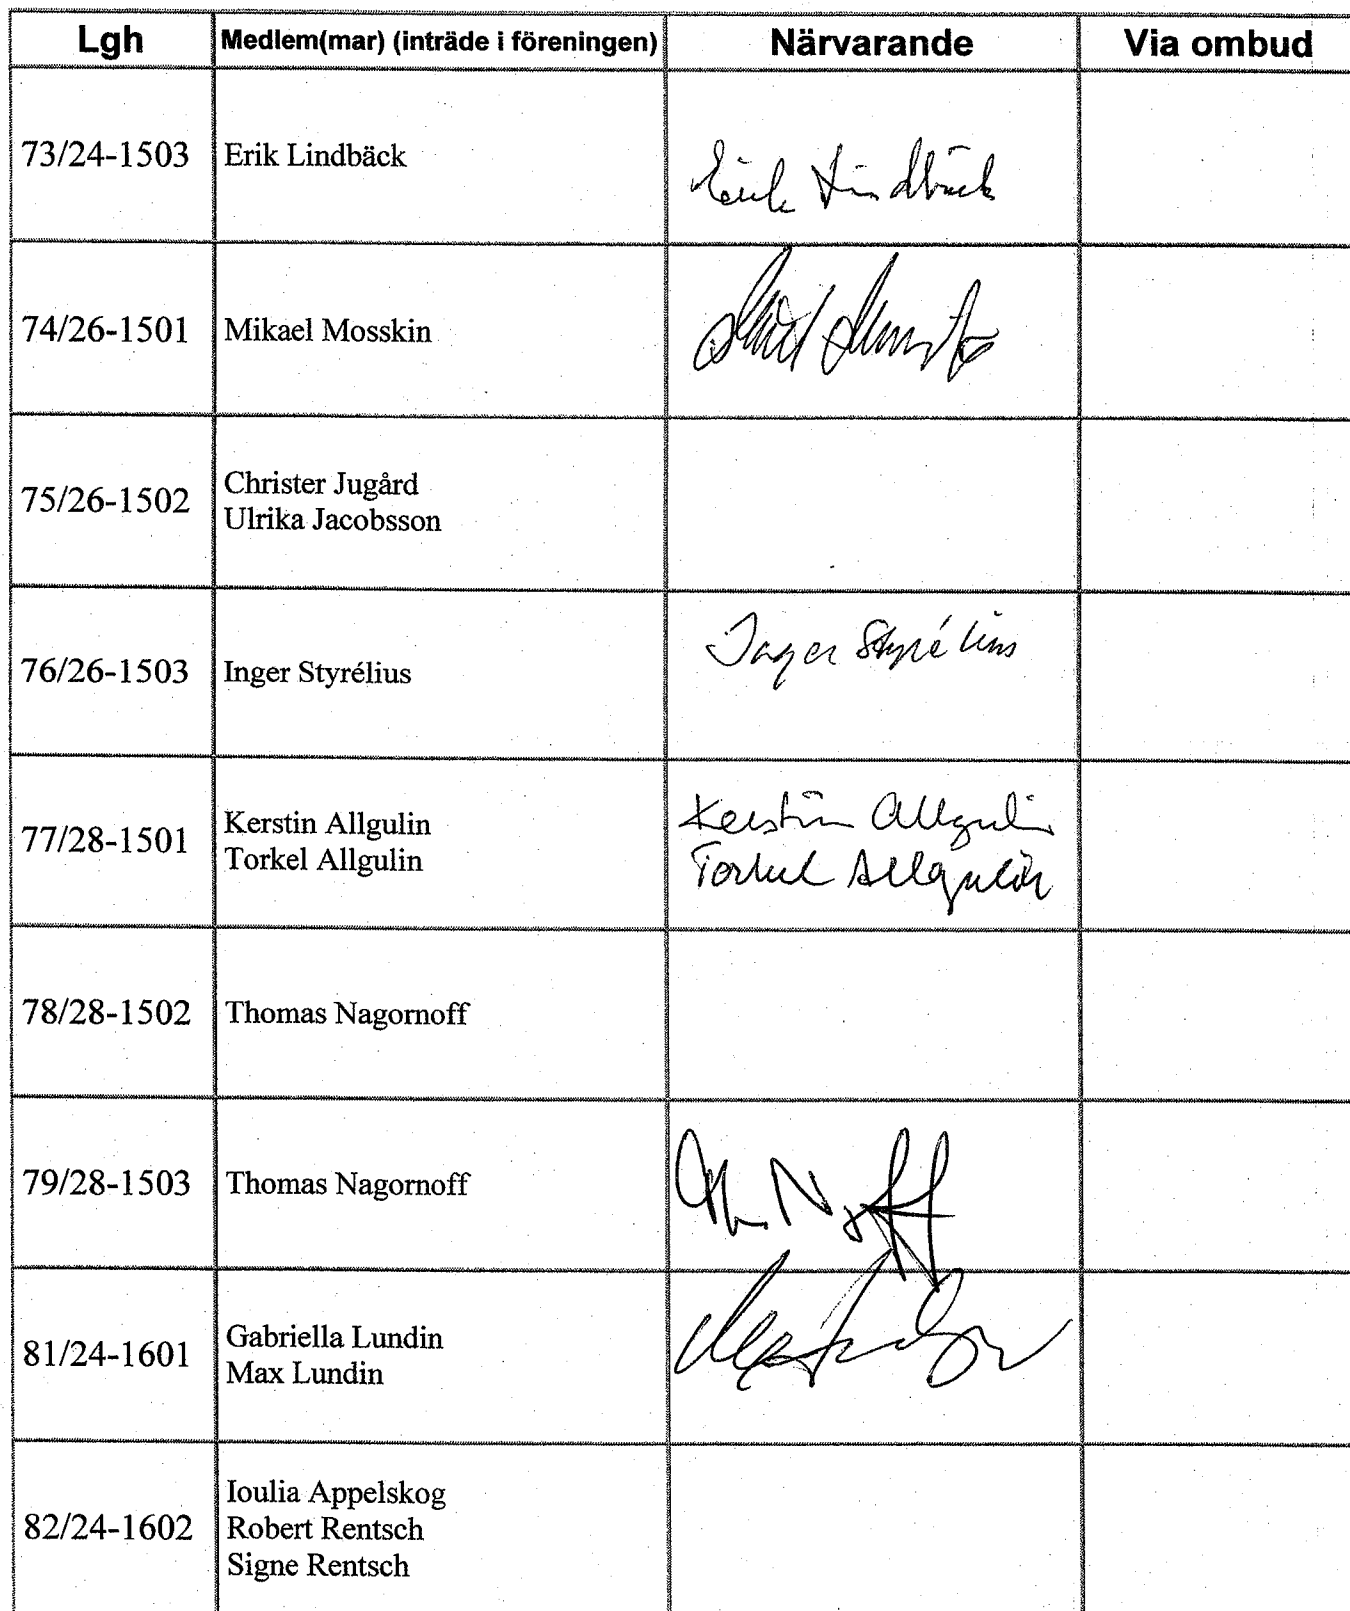 Lgh Medlem(mar) (inträde i föreningen) Närvarande Via ombud
73/24-1503 Erik Lindbäck Erik Lindbäck
74/26-1501 Mikael Mosskin
75/26-1502 Christer Jugård
Ulrika Jacobsson
76/26-1503 Inger Styrélius Inger Styrélius
77/28-1501 Kerstin Allgulin Kerstin Allgulin
Torkel Allgulin Torkel Allgulin
78/28-1502 Thomas Nagornoff
79/28-1503 Thomas Nagornoff
81/24-1601 Gabriella Lundin
Max Lundin
82/24-1602 Ioulia Appelskog
Robert Rentsch
Signe Rentsch